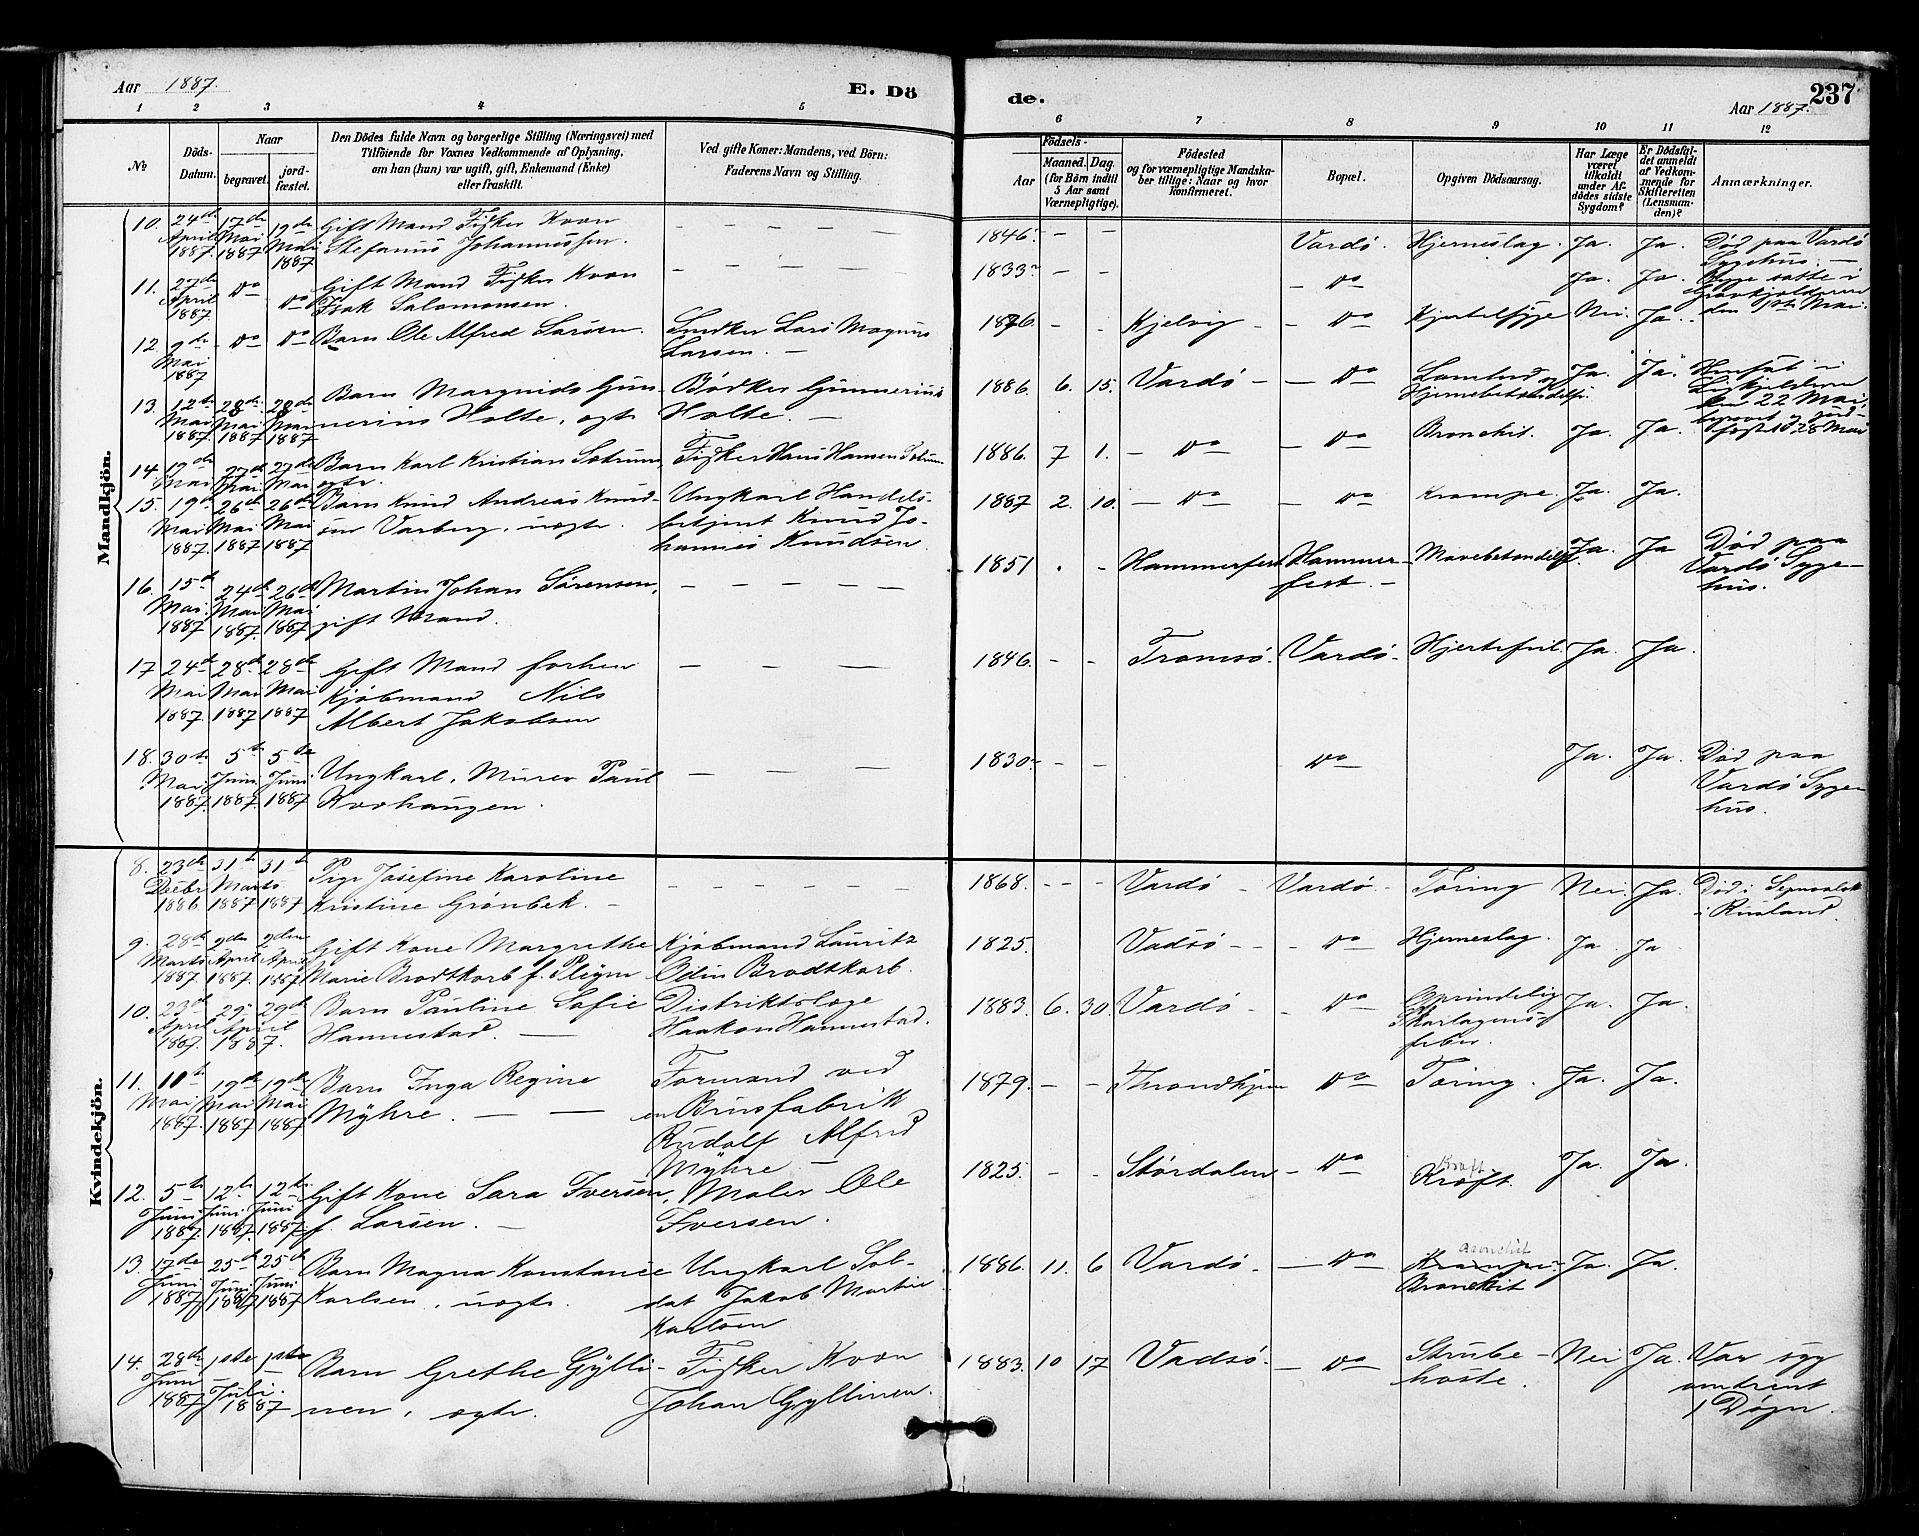 Aar 1887.
E. Dö
de.
237
Aar 1887.
1 2 3 4 5 6 7 8 9 10 11 12
№
Döds-Datum.
Naar
begravet.
jordfæstet.
Den Dödes fulde Navn og borgerlige Stilling (Næringsvei) med
Tilföiende for Voxnes Vedkommende af Oplysning,
om han (hun) var ugift, gift, Enkemand (Enke)
eller fraskilt.
Ved gifte Koner: Mandens, ved Börn:
Faderens Navn og Stilling.
Födsels-
Aar
Maaned.
Dag.
(for Börn indtil
5 Aar samt
Værnepligtige).
Födested
og for værnepligtige Mandskaber tillige: Naar og hvor
konfirmeret.
Bopæl.
Opgiven Dödsaarsag.
Har Læge
været
tilkaldt
under Afdödes sidste
Sygdom?
Er Dödsfaldet anmeldt
af Vedkommende for
Skifteretten
(Lensmanden)?
Anmærkninger.
Mandkjön.
10. 24de April 1887 17de Mai 1887 19de Mai 1887 Gift Mand Fisker Kvæn
Stefanus Johannessen. — — — 1846. — — Vardö. Hjerneslag. Ja. Ja. Död paa Vardö
Sygehus. —
11. 27de April 1887 Do Do Gift Mand Fisker Kvæn
Isak Salomonsen. — — — 1833 — — — Do Ja. Ja.
12. 9de Mai 1887 Do Do Barn Ole Alfred Larsen. Snedker Lars Magnus
Larsen. — 1876. - - Kjelvig — — Do Nei Ja.
13. 12te Mai 1887. 28de Mai 1887 28de Mai 1887 Barn Margnids Gunnerius Holte, ægte Bödker Gunnerius
Holte. — 1886. 6. 15. Vardö — — Do Hjernebetændelse. Ja. Ja.
den 22 Mai,
14. 19de Mai 27de Mai 27de Mai Barn Karl Kristian
ægte. Fisker Hans Hansen 1886. 7 1. — Do — Do Bronchit. Ja. Ja.
15. 19de Mai 1887. 26de Mai 1887 26de Mai 1887 Barn Knud Andreas Knudsen Varberg, uægte. Ungkarl Handelsbetjent Knud Johannes Knudsen 1887 2. 10. — Do — Do Krampe. Ja. Ja.
16. 15de Mai. 1887 24de Mai 1887. 26de Mai 1887 Martin Johan Sörensen,
gift Mand. — — — 1851 - - Hammerfest Hammerfest. — Mavebetændelse. Ja. Ja Död paa
Vardö Sygehus.
17 24de Mai 1887. 28de Mai 1887 28de Mai 1887 Gift Mand forhen
Kjöbmand Nils
Albert Jakobsen — — — 1846. — - Tromsö. Vardö. Hjertefeil. Ja. Ja.
18. 30te Mai 1887. 5te Juni 1887. 5te Juni 1887 Ungkarl, Murer Paul
Kvohaugen. — — — 1830. — — Do Ja. Ja. Död paa
Vardö Sygehus.
Kvindekjön.
8. 23de Decbr 1886. 31te Marts 1887 31te 1887 Pige Josefine Karoline
Kristine Grönbek. — — — — 1868. — — Vardö — Vardö — Tæring Nei Ja. Död i
i Rusland.
9. 28de Marts 1887. 2den April 1887. 2den April 1887 Gift Kone Margrethe
Marie Brodtkorb f. Pleym Kjöbmand Lauritz
Odin Brodtkorb. 1825. Vadsö — — — Do Hjerneslag. Ja Ja
10. 23de April 1887. 29de April 1887. 29de Barn Pauline Sofie
Hannestad. — Distriktslæge
Haakon Hannestad. 1883. 6. 30. Vardö — — Do Oprindelig
Skarlagensfeber. Ja. Ja.
11. 11te Mai 1887. 19de Mai 1887 19de Mai 1887 Barn Inga Regine
Myhre. — — Formand ved
en Brusfabrik
Rudolf Alfred
Myhre — 1879. — — Throndhjem Do Tæring. Ja. Ja.
12. 5te Juni 1887. 12te Juni 1887. 12te Juni 1887 Gift Kone Sara Iversen,
f. Larsen. — Maler Ole
Iversen. 1825. — — Stördalen — Do Kræft. Kræft Ja. Ja.
13. 17de Juni 1887 25de Juni 1887 25de Juni 1887 Barn Magna Konstance
Karlsen, uægte. Ungkarl Soldat Jakob Martin
Karlsen 1886. 11. 6 Vardö. — Do Bronchit
Krampe.
Bronchit Ja. Ja.
14. 28de Juni 1887 1ste Juli 1887 1ste Barn Grethe Gyllinen, ægte. Fisker Kvæn
Johan Gyllinen. 1883. 10 17 Vadsö. — Do Strubehoste. Nei Ja. Var syg
omtrent
1 Dögn.